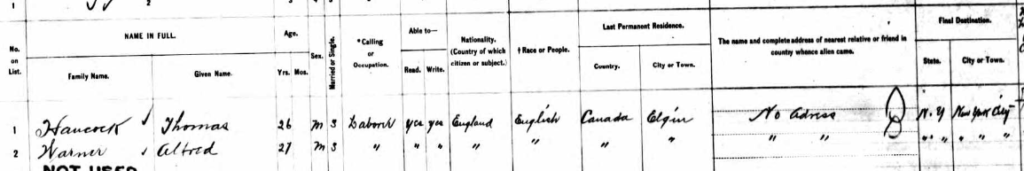 1 2
NAME IN FULL. Age. *Calling or Occupation. Able to— Nationality. (Country of which citizen or subject.) †Race or People. Last Permanent Residence. The name and complete address of nearest relative or friend in country whence alien came. Final Destination.
No. on List. Family Name. Given Name. Yrs. Mos. Sex. Married or Single. Read. Write. Country. City or Town. State. City or Town.
1 Hancock Thomas 26 m s Laborer yes yes England English Canada Elgin No Adress N.Y New York City
2 Warner Alfred 27 m s " " " " " " " " " " " " " "
NOT USED